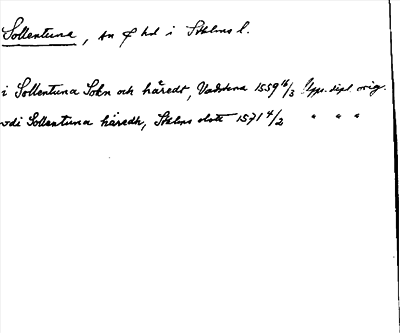 Sollentuna, sn & hd i Sthlms l.
i Sollentuna Sokn och häredt, Vadstena 1559 16/3 Upps. dipl. orig.
vdi Sollentuna häredh, Sthlms slott 1571 4/2 " " "